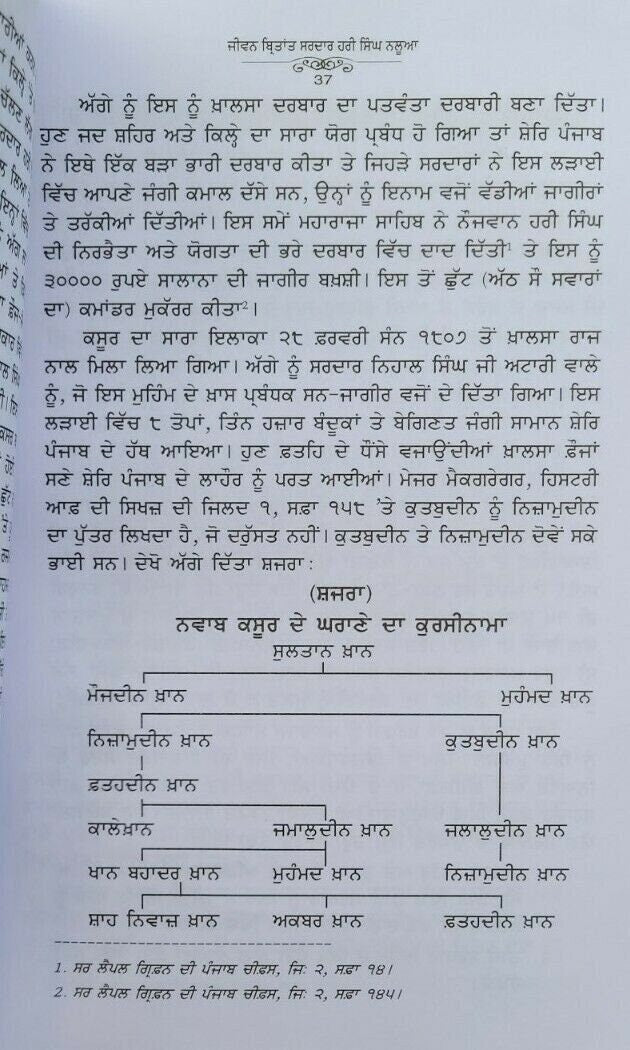 ਜੀਵਨ ਬ੍ਰਿਤਾਂਤ ਸਰਦਾਰ ਹਰੀ ਸਿੰਘ ਨਲੂਆ
37
ਅੱਗੇ ਨੂੰ ਇਸ ਨੂੰ ਖ਼ਾਲਸਾ ਦਰਬਾਰ ਦਾ ਪਤਵੰਤਾ ਦਰਬਾਰੀ ਬਣਾ ਦਿੱਤਾ।
ਹੁਣ ਜਦ ਸ਼ਹਿਰ ਅਤੇ ਕਿਲ੍ਹੇ ਦਾ ਸਾਰਾ ਯੋਗ ਪ੍ਰਬੰਧ ਹੋ ਗਿਆ ਤਾਂ ਸ਼ੇਰਿ ਪੰਜਾਬ
ਨੇ ਇਥੇ ਇੱਕ ਬੜਾ ਭਾਰੀ ਦਰਬਾਰ ਕੀਤਾ ਤੇ ਜਿਹੜੇ ਸਰਦਾਰਾਂ ਨੇ ਇਸ ਲੜਾਈ
ਵਿੱਚ ਆਪਣੇ ਜੰਗੀ ਕਮਾਲ ਦੱਸੇ ਸਨ, ਉਨ੍ਹਾਂ ਨੂੰ ਇਨਾਮ ਵਜੋਂ ਵੱਡੀਆਂ ਜਾਗੀਰਾਂ
ਤੇ ਤਰੱਕੀਆਂ ਦਿੱਤੀਆਂ। ਇਸ ਸਮੇਂ ਮਹਾਰਾਜਾ ਸਾਹਿਬ ਨੇ ਨੌਜਵਾਨ ਹਰੀ ਸਿੰਘ
ਦੀ ਨਿਰਭੈਤਾ ਅਤੇ ਯੋਗਤਾ ਦੀ ਭਰੇ ਦਰਬਾਰ ਵਿੱਚ ਦਾਦ ਦਿੱਤੀ¹ ਤੇ ਇਸ ਨੂੰ
੩੦੦੦੦ ਰੁਪਏ ਸਾਲਾਨਾ ਦੀ ਜਾਗੀਰ ਬਖ਼ਸ਼ੀ। ਇਸ ਤੋਂ ਛੁੱਟ (ਅੱਠ ਸੌ ਸਵਾਰਾਂ
ਦਾ) ਕਮਾਂਡਰ ਮੁਕੱਰਰ ਕੀਤਾ²।
ਕਸੂਰ ਦਾ ਸਾਰਾ ਇਲਾਕਾ ੨੮ ਫ਼ਰਵਰੀ ਸੰਨ ੧੮੦੭ ਤੋਂ ਖ਼ਾਲਸਾ ਰਾਜ
ਨਾਲ ਮਿਲਾ ਲਿਆ ਗਿਆ। ਅੱਗੇ ਨੂੰ ਸਰਦਾਰ ਨਿਹਾਲ ਸਿੰਘ ਜੀ ਅਟਾਰੀ ਵਾਲੇ
ਨੂੰ, ਜੋ ਇਸ ਮੁਹਿੰਮ ਦੇ ਖ਼ਾਸ ਪ੍ਰਬੰਧਕ ਸਨ-ਜਾਗੀਰ ਵਜੋਂ ਦੇ ਦਿੱਤਾ ਗਿਆ। ਇਸ
ਲੜਾਈ ਵਿੱਚ ੮ ਤੋਪਾਂ, ਤਿੰਨ ਹਜ਼ਾਰ ਬੰਦੂਕਾਂ ਤੇ ਬੇਗਿਣਤ ਜੰਗੀ ਸਾਮਾਨ ਸ਼ੇਰਿ
ਪੰਜਾਬ ਦੇ ਹੱਥ ਆਇਆ। ਹੁਣ ਫ਼ਤਹਿ ਦੇ ਧੌਂਸੇ ਵਜਾਉਂਦੀਆਂ ਖ਼ਾਲਸਾ ਫ਼ੌਜਾਂ
ਸਣੇ ਸ਼ੇਰਿ ਪੰਜਾਬ ਦੇ ਲਾਹੌਰ ਨੂੰ ਪਰਤ ਆਈਆਂ। ਮੇਜਰ ਮੈਕਗਰੇਗਰ, ਹਿਸਟਰੀ
ਆਫ਼ ਦੀ ਸਿਖਜ਼ ਦੀ ਜਿਲਦ ੧, ਸਫ਼ਾ ੧੫੮ 'ਤੇ ਕੁਤਬੁਦੀਨ ਨੂੰ ਨਿਜ਼ਾਮੁਦੀਨ
ਦਾ ਪੁੱਤਰ ਲਿਖਦਾ ਹੈ, ਜੋ ਦਰੁੱਸਤ ਨਹੀਂ। ਕੁਤਬੁਦੀਨ ਤੇ ਨਿਜ਼ਾਮੁਦੀਨ ਦੋਵੇਂ ਸਕੇ
ਭਾਈ ਸਨ। ਦੇਖੋ ਅੱਗੇ ਦਿੱਤਾ ਸ਼ਜਰਾ :
(ਸ਼ਜਰਾ)
ਨਵਾਬ ਕਸੂਰ ਦੇ ਘਰਾਣੇ ਦਾ ਕੁਰਸੀਨਾਮਾ
ਸੁਲਤਾਨ ਖ਼ਾਨ
ਮੌਜਦੀਨ ਖ਼ਾਨ ਮੁਹੰਮਦ ਖ਼ਾਨ
ਨਿਜ਼ਾਮੁਦੀਨ ਖ਼ਾਨ ਕੁਤਬੁਦੀਨ ਖ਼ਾਨ
ਫ਼ਤਹਦੀਨ ਖ਼ਾਨ
ਕਾਲੇਖ਼ਾਨ ਜਮਾਲੁਦੀਨ ਖ਼ਾਨ ਜਲਾਲੁਦੀਨ ਖ਼ਾਨ
ਖਾਨ ਬਹਾਦਰ ਖ਼ਾਨ ਮੁਹੰਮਦ ਖ਼ਾਨ ਨਿਜ਼ਾਮੁਦੀਨ ਖ਼ਾਨ
ਸ਼ਾਹ ਨਿਵਾਜ਼ ਖ਼ਾਨ ਅਕਬਰ ਖ਼ਾਨ ਫ਼ਤਹਦੀਨ ਖ਼ਾਨ
1. ਸਰ ਲੈਪਲ ਗ੍ਰਿਫ਼ਨ ਦੀ ਪੰਜਾਬ ਚੀਫਸ, ਜਿਃ ੨, ਸਫ਼ਾ ੧੪।
2. ਸਰ ਲੈਪਲ ਗ੍ਰਿਫ਼ਨ ਦੀ ਪੰਜਾਬ ਚੀਫਸ, ਜਿਃ ੨, ਸਫ਼ਾ ੧੪੫।